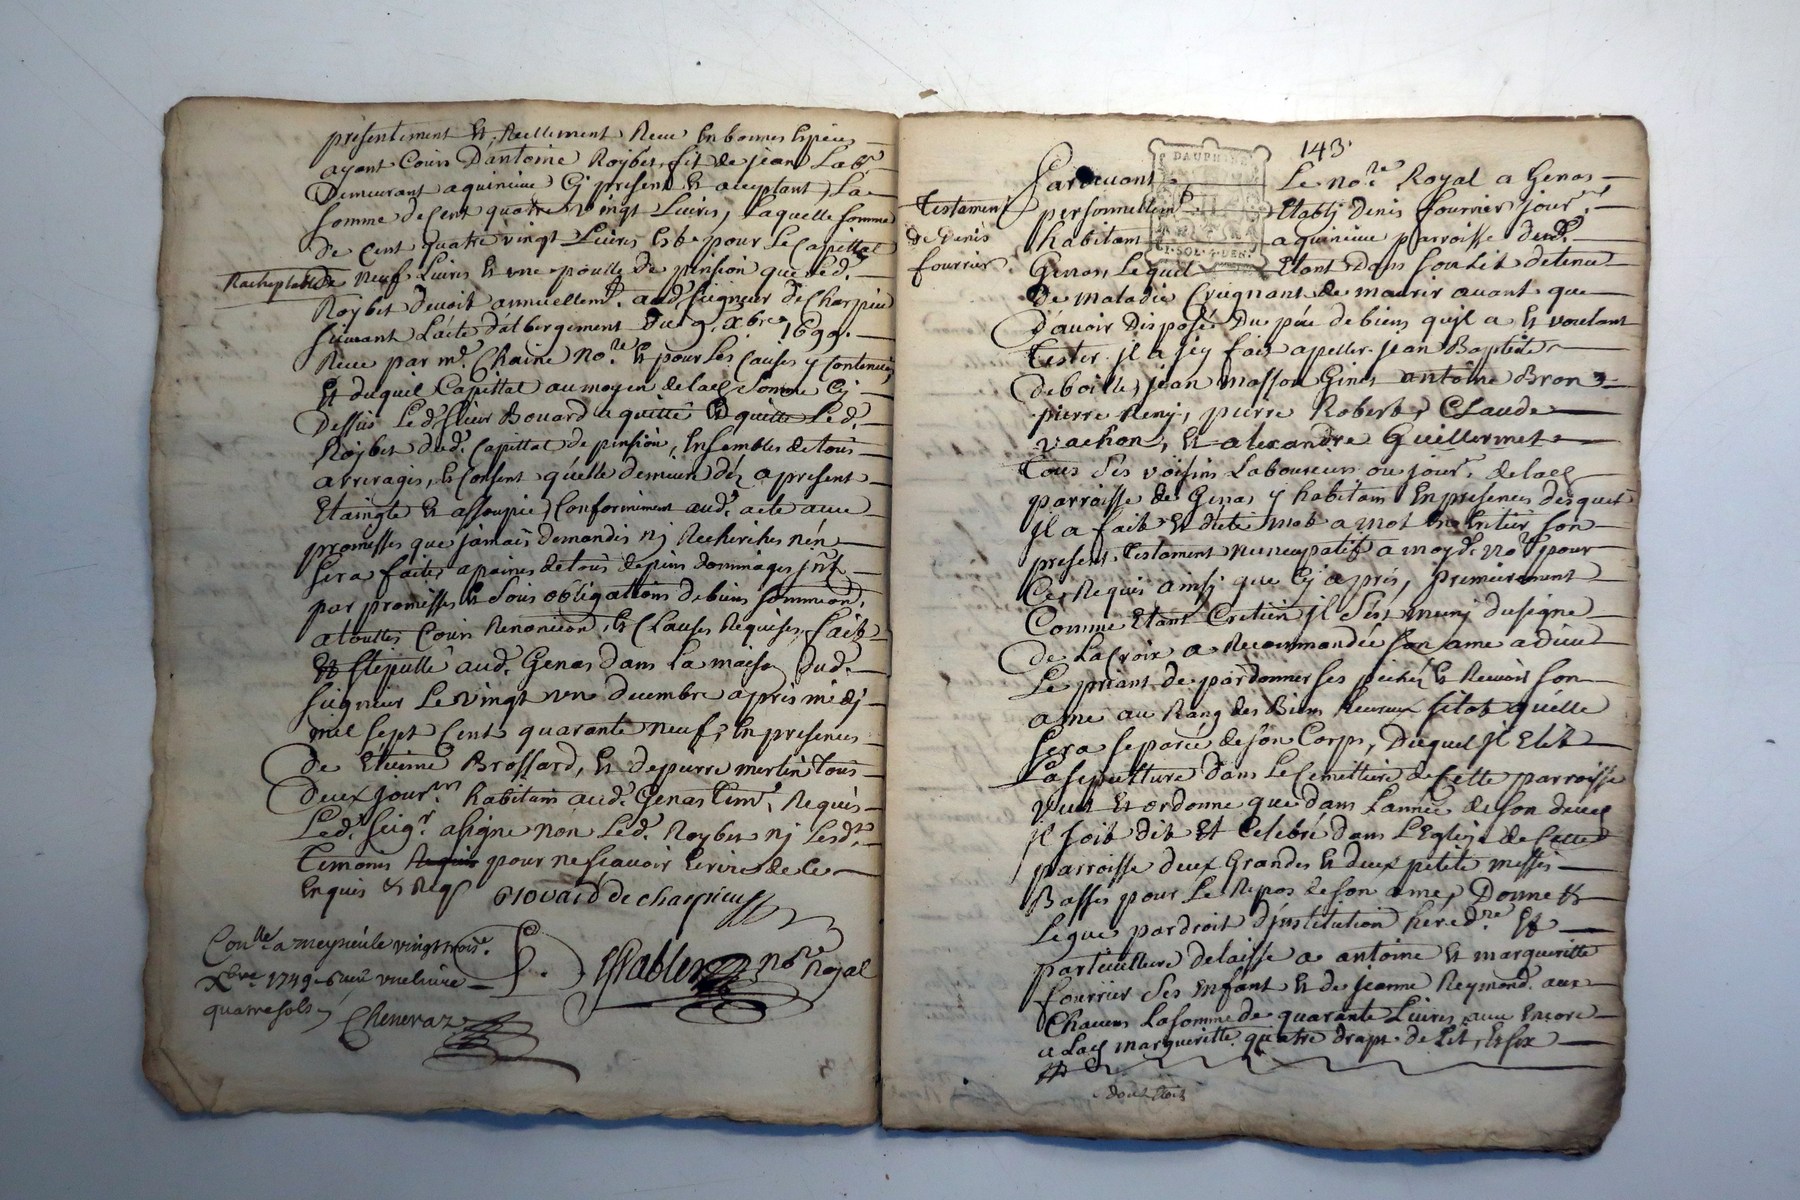 presentement et reellement Receu en bonnes espèces
ayant Cours D'antoine Roybet fils de jean Labr
Demeurant a quincieu Cy present et acceptant, La
somme de Cent quatre vingt Livres, Laquelle somme
de Cent quatre vingt Livres est pour Le Capittal
Racheptable
de neuf Livres et une poulle de pension que led.
Roybet devoit annuellemt. aud. seigneur de Charpieu
suivant Lacte d'albergement du 9. xbre 1699.
Receu par me. Chaine nore. et pour Les Causes y Contenues
Et duquel Capittal au moyen de lad. somme Cy
Dessus Led. sieur Bouard a quitté et quitte Led.
Roybet dud. Capittal de pension, Ensembles de tous
arrerages, et Consent quelle demeure dez a present
Etaingte et assoupie, Conformement aud. acte avec
promesses que jamais demandes nj Recherches n'en
sera faites a paines de tous depens dommages
par promesses et sous obligations de biens
a touttes Cours Renoncions, et Clauses Requises, fait
Et stepullé aud. Genas dans La maison dud.
seigneur Le vingt un decembre apres midj
mil sept Cent quarante neuf, En presences
De Etienne Brossard, et de pierre merlin tous
deux jourers habitans aud. Genas tem. Requis
Led. seigr. a signé non Led. Roybet nj Lesd.
temoins Requis pour ne scavoir Ecrire de ce
Enquis et Req
Bouard de charpieu
nore Royal
Conlle a meyzieu le vingt trois
Xbre 1749 Reçu une livre
quatre sols
Cheneraz
143.
DAUPHINE
SOL
Testament
de Denis
fourrier
Pardevant Le nore. Royal a Genas
personnellemt. Etablj Denis fourrier jourr.
habitant a quincieu parroisse dud.
Genas Lequel Etant dans son Lit detenu
de maladie Creignant de mourir avant que
d'avoir Disposé Du peu de biens qu'il a et voulant
tester. il a fait apeller jean Baptiste
deboille, jean masson Ginet antoine Bron
pierre Remj, pierre Robert, Claude
vachon, et alexandre Guillermet
tous ses voisins Laboureurs ou jourr. de lad.
parroisse de Genas y habitans En presences desquels
il a fait Et dicté mot a mot En Entier son
present Testament nuncupatif a moyd. nore pour
Ce Requis ainsj que Cj après, Premierement
Comme Etant Cretien il s'est munj du signe
De La Croix a Recommandée son ame a dieu
Le priant de pardonner ses pechés et Recevoir son
ame au Rang des Bien heureux sitot qu'elle
sera separée de son Corps, Duquel il Elit
La sepulture dans Le Cemettiere de Cette parroisse
veut Et ordonne que dans Lannée de son deces
il soit dit Et Celebré dans L'Eglise de Cette
parroisse deux Grandes Et deux petite messes
Basses pour Le Repos de son ame, Donne et
Legue par droit d'institution hered.re Et
particulliere delaisse a antoine Et margueritte
fourrier ses Enfant Et de jeanne Reymond. aux
Chacuns La somme de quarante Livres avec Encore
a Lad. margueritte quatre draps de Lit, Et six